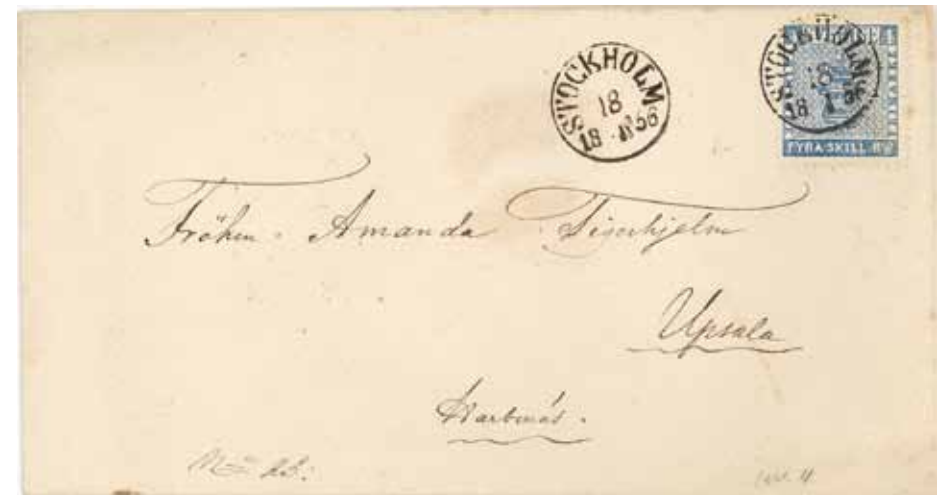 STOCKHOLM
18
18 56
STOCKHOLM
18
18 1 56
FYRA SKILL. Bco
Fröken Amanda Tigerhjelm
Upsala